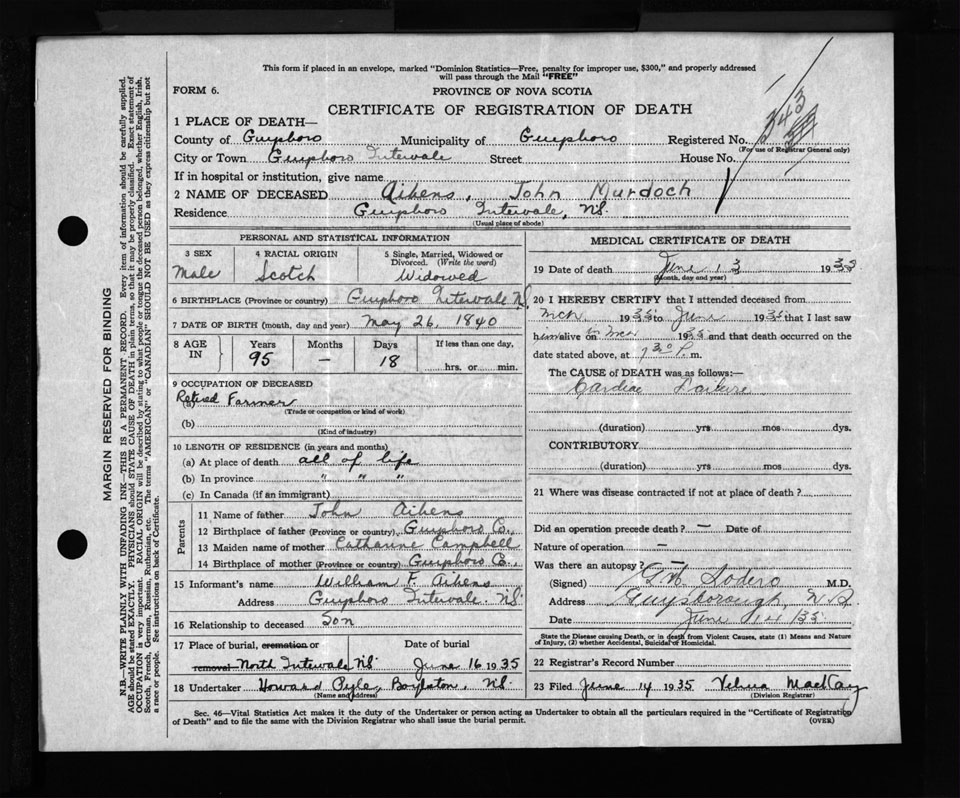 This form if placed in an envelope, marked "Dominion Statistics—Free, penalty for improper use, $300," and properly addressed
will pass through the Mail "FREE"
FORM 6.
PROVINCE OF NOVA SCOTIA
CERTIFICATE OF REGISTRATION OF DEATH
1 PLACE OF DEATH—
County of Guysboro Municipality of Guysboro Registered No.
(For use of Registrar General only)
City or Town Guysboro Intervale Street House No.
If in hospital or institution, give name
2 NAME OF DECEASED Aikens, John Murdoch
Residence Guysboro Intervale, N.S.
(Usual place of abode)
PERSONAL AND STATISTICAL INFORMATION
3 SEX 4 RACIAL ORIGIN 5 Single, Married, Widowed or
Divorced. (Write the word)
Male Scotch Widowed
6 BIRTHPLACE (Province or country) Guysboro Intervale N.S.
7 DATE OF BIRTH (month, day and year) May 26, 1840
8 AGE IN Years Months Days If less than one day,
95 — 18 hrs. or min.
9 OCCUPATION OF DECEASED
(a) Retired Farmer
(Trade or occupation or kind of work)
(b)
(Kind of industry)
10 LENGTH OF RESIDENCE (in years and months)
(a) At place of death all of life
(b) In province " " "
(c) In Canada (if an immigrant)
Parents
11 Name of father John Aikens
12 Birthplace of father (Province or country) Guysboro Co.,
13 Maiden name of mother Catharine Campbell
14 Birthplace of mother (Province or country) Guysboro Co.,
15 Informant's name William F. Aikens
Address Guysboro Intervale. N.S.
16 Relationship to deceased Son
17 Place of burial, cremation or Date of burial
removal North Intervale N.S. June 16 1935
18 Undertaker Howard Pyle, Boylston, N.S.
(Name and address)
MEDICAL CERTIFICATE OF DEATH
19 Date of death June 13 1935
(Month, day and year)
20 I HEREBY CERTIFY that I attended deceased from
Mch 1935 to June 1935 that I last saw
him alive on 1935 and that death occurred on the
date stated above, at 730 P. m.
The CAUSE OF DEATH was as follows:—
Cardiac Failure
(duration) yrs mos dys.
CONTRIBUTORY
(duration) yrs. mos. dys.
21 Where was disease contracted if not at place of death?
Did an operation precede death? — Date of
Nature of operation —
Was there an autopsy? —
(Signed) Sodero M.D.
Address Guysborough, N.S.
Date June 14 / 35
State the Disease causing Death, or in death from Violent Causes, state (1) Means and Nature
of Injury, (2) whether Accidental, Suicidal or Homicidal.
22 Registrar's Record Number
23 Filed June 14 1935 Velma MacKay
(Division Registrar)
Sec. 46—Vital Statistics Act makes it the duty of the Undertaker or person acting as Undertaker to obtain all the particulars required in the "Certificate of Registration
of Death" and to file the same with the Division Registrar who shall issue the burial permit.
(OVER)
MARGIN RESERVED FOR BINDING
N.B.—WRITE PLAINLY WITH UNFADING INK—THIS IS A PERMANENT RECORD. Every item of information should be carefully supplied.
AGE should be stated EXACTLY. PHYSICIANS should STATE CAUSE OF DEATH in plain terms, so that it may be properly classified. Exact statement of
OCCUPATION is very important. RACIAL ORIGIN will be described by stating to what people or tongue the deceased person belonged, whether English, Irish,
Scotch, French, German, Russian, Ruthenian, etc. The terms "AMERICAN" or "CANADIAN" SHOULD NOT BE USED as they express citizenship but not
a race or people. See instructions on back of Certificate.